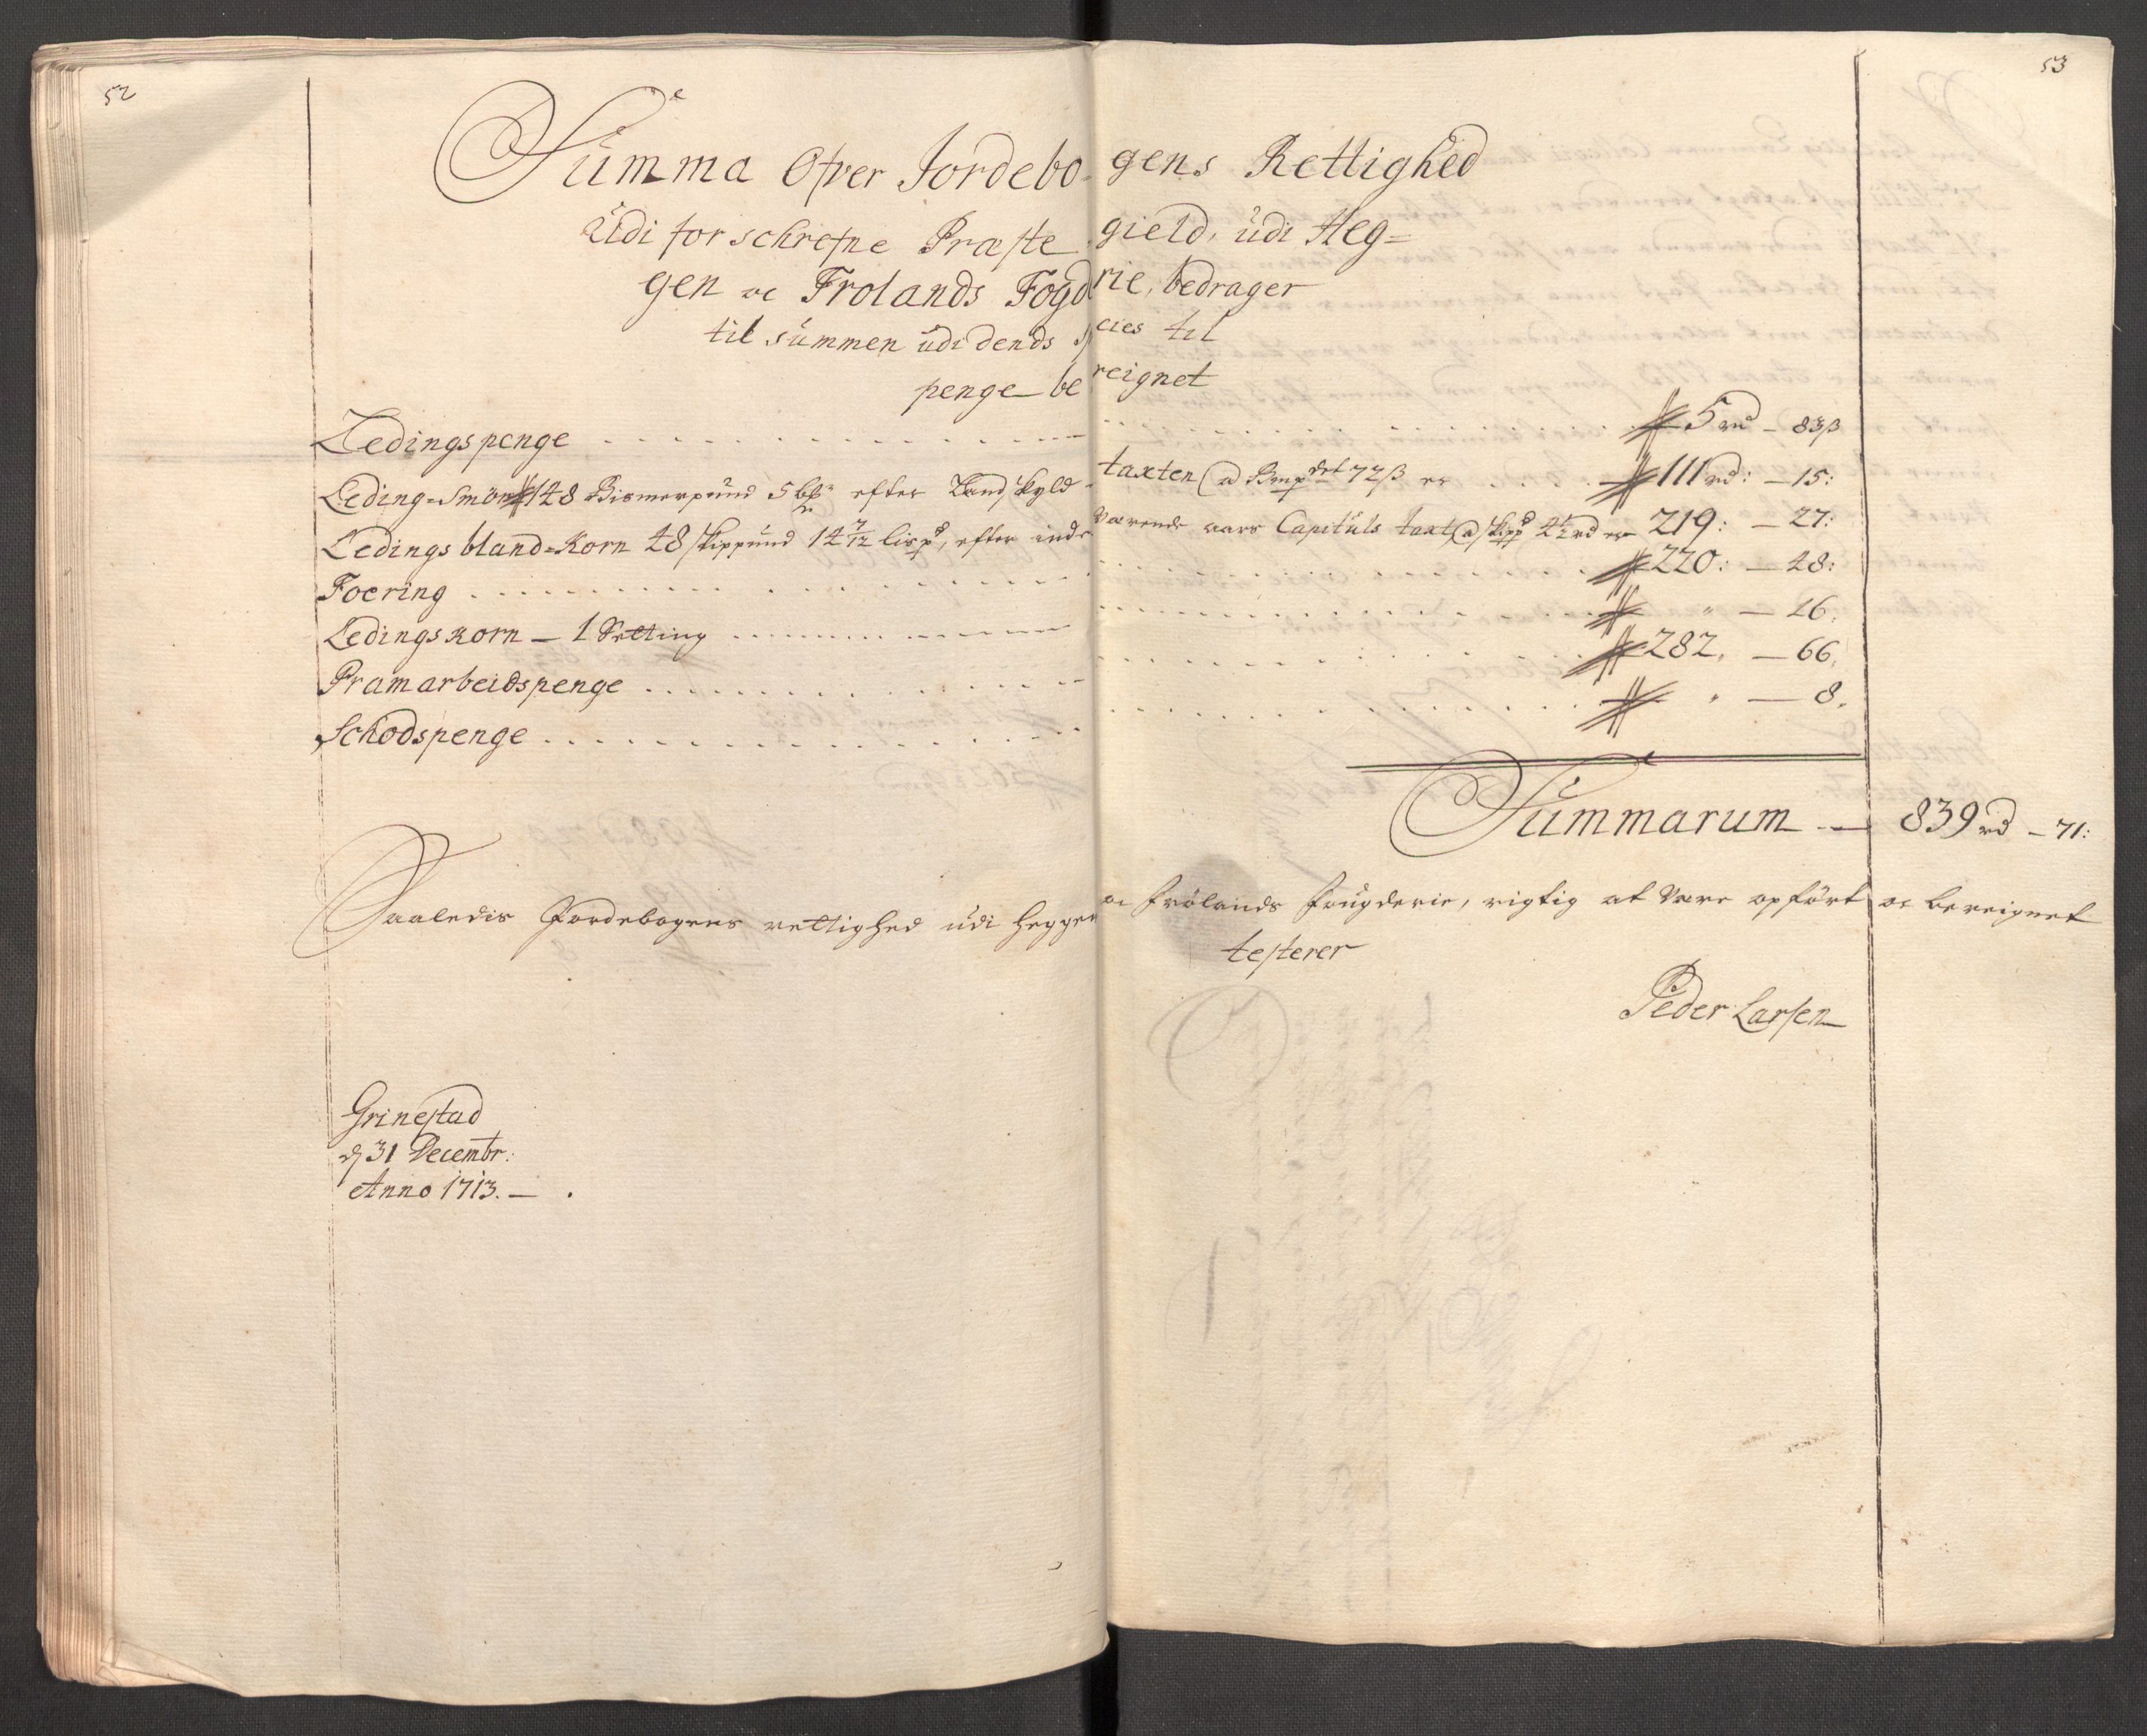 52
53
Summa Ofver Jordebo- gens Rettighed
üdi forschrefne Præste gield, üdi Heg=
gen oc Frolands Fogd rie, bedrager
til summen üdi dends Species til
penge be reignet
Ledingspenge . . . . . 5 rd - 83 ß
Leding=Smör 148 Bismerpund 5 efter Landskyld taxten @ Bmp det 72 ß er . . . . 111 rd: - 15:
Ledings bland=Korn 48 skippund 14 7/12 lispd, efter inde værende aars Capituls taxt @ skippd 4 1/2 rd er 219: - 27:
Foering . . . . . 220: - 48:
Ledingskorn - 1 Setting . . . . . " - 16.
Pramarbeidspenge . . . . . 282. - 66.
Schodspenge . . . . . " - 8.
Summarum - 839 rd - 71:
Saaledis Jordebogens rettighed üdi Heggen oc Frölands Fougderie, rigtig at være opfört oc bereignet
testerer
Peder Larsen
Grinestad
d 31 Decembr:
Anno 1713. -